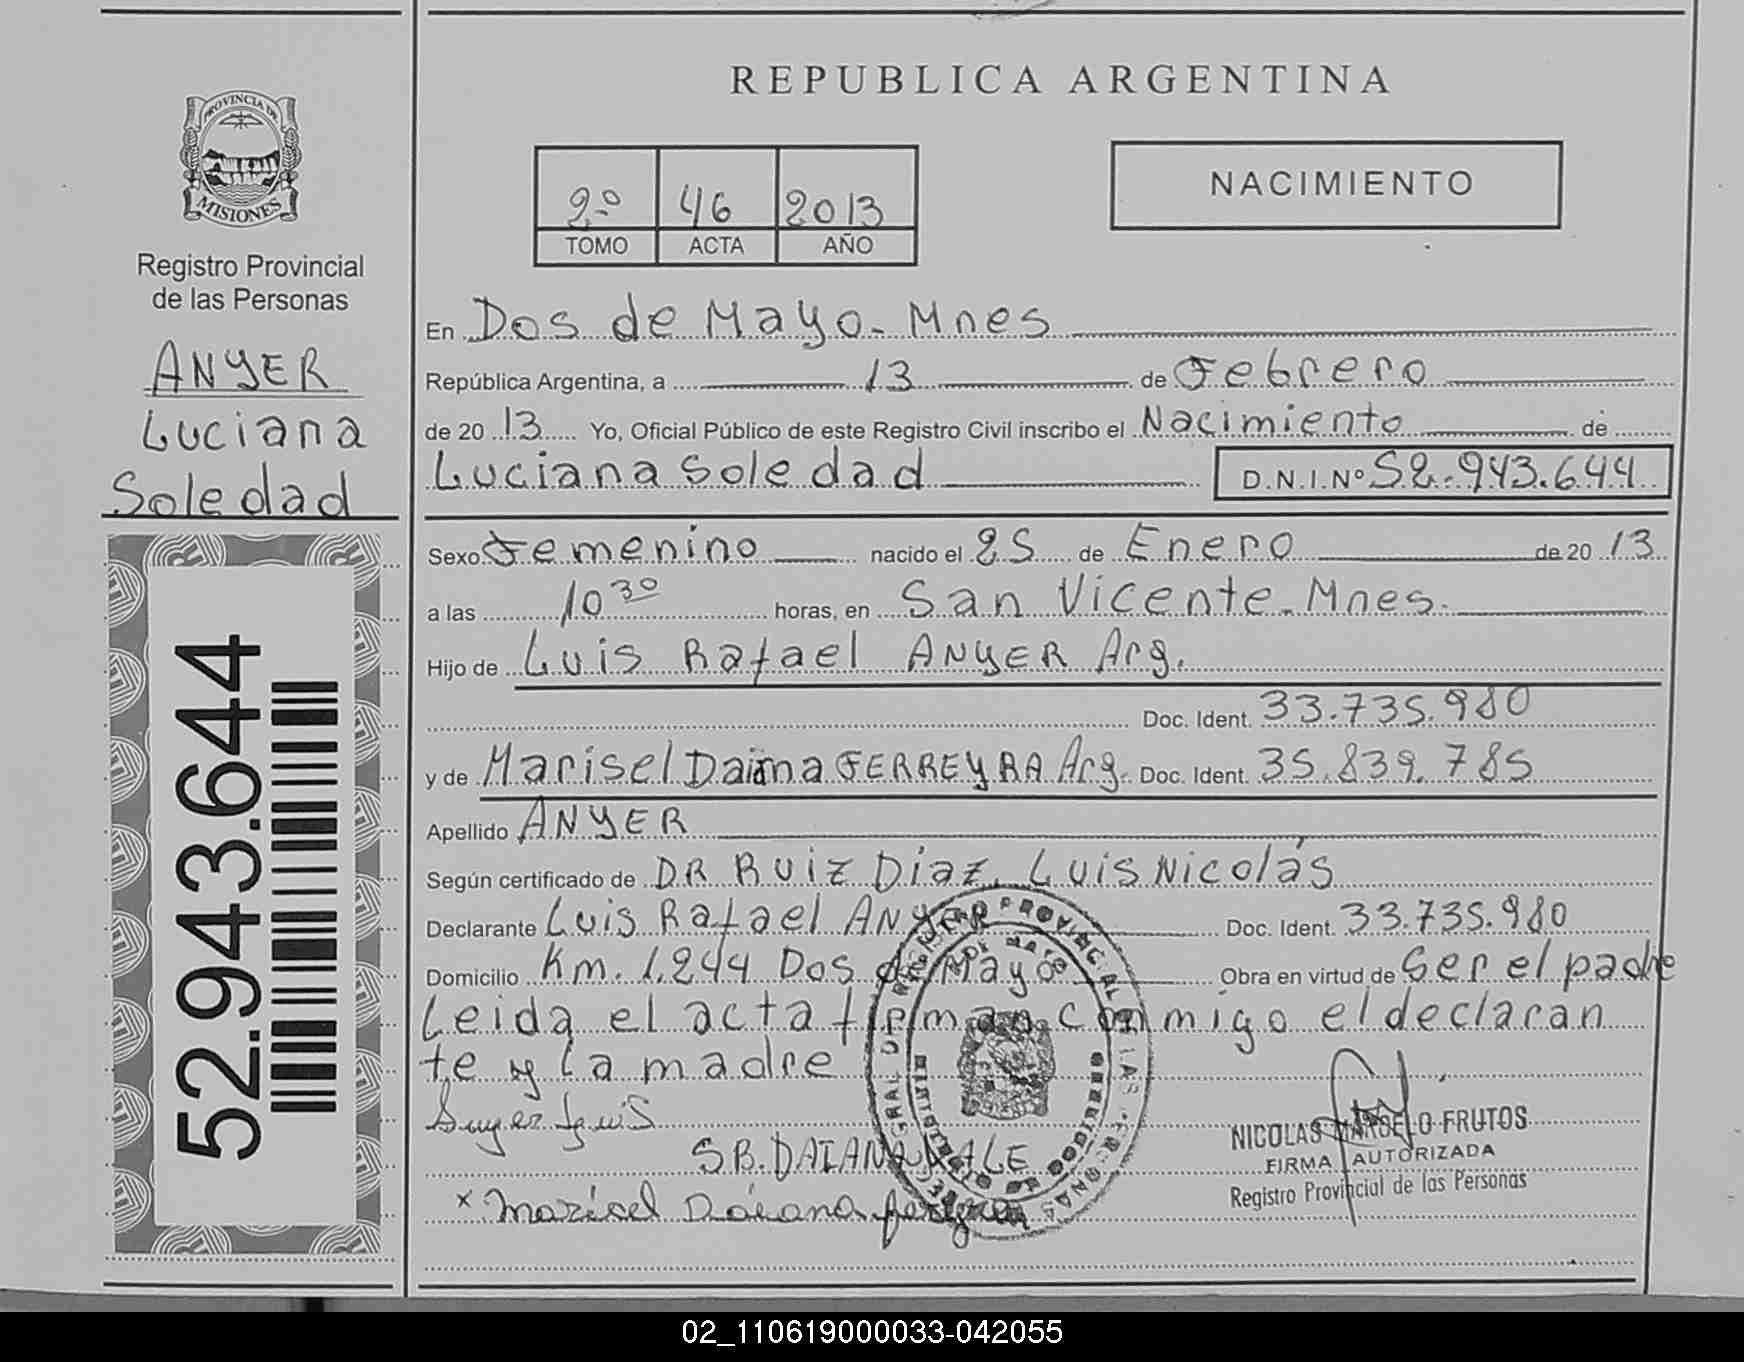 REPUBLICA ARGENTINA
PROVINCIA DE
MISIONES
Registro Provincial
de las Personas
ANYER
Luciana
Soledad
52.943.644
2º 46 2013
TOMO ACTA AÑO
NACIMIENTO
En Dos de Mayo - Mnes
República Argentina, a 13 de Febrero
de 2013 Yo, Oficial Público de este Registro Civil inscribo el Nacimiento de
Luciana Soledad D.N.I.Nº 52.943.644
Sexo Femenino nacido el 25 de Enero de 2013
a las 10 30 horas, en San Vicente - Mnes.
Hijo de Luis Rafael ANYER Arg.
Doc. Ident. 33.735.980
y de Marisel Daiana FERREYRA Arg. Doc. Ident. 35.839.785
Apellido ANYER
Según certificado de DR RUIZ Diaz, Luis Nicolás
Declarante Luis Rafael ANYER Doc. Ident. 33.735.980
Domicilio Km. 1.244 Dos de Mayo Obra en virtud de Ser el padre
Leida el acta firman conmigo el declaran
te y la madre
Anyer Luis
S.B. DAIANA VALE
x Marisel Daiana Ferreyra
NICOLAS MARCELO FRUTOS
FIRMA AUTORIZADA
Registro Provincial de las Personas
02_110619000033-042055